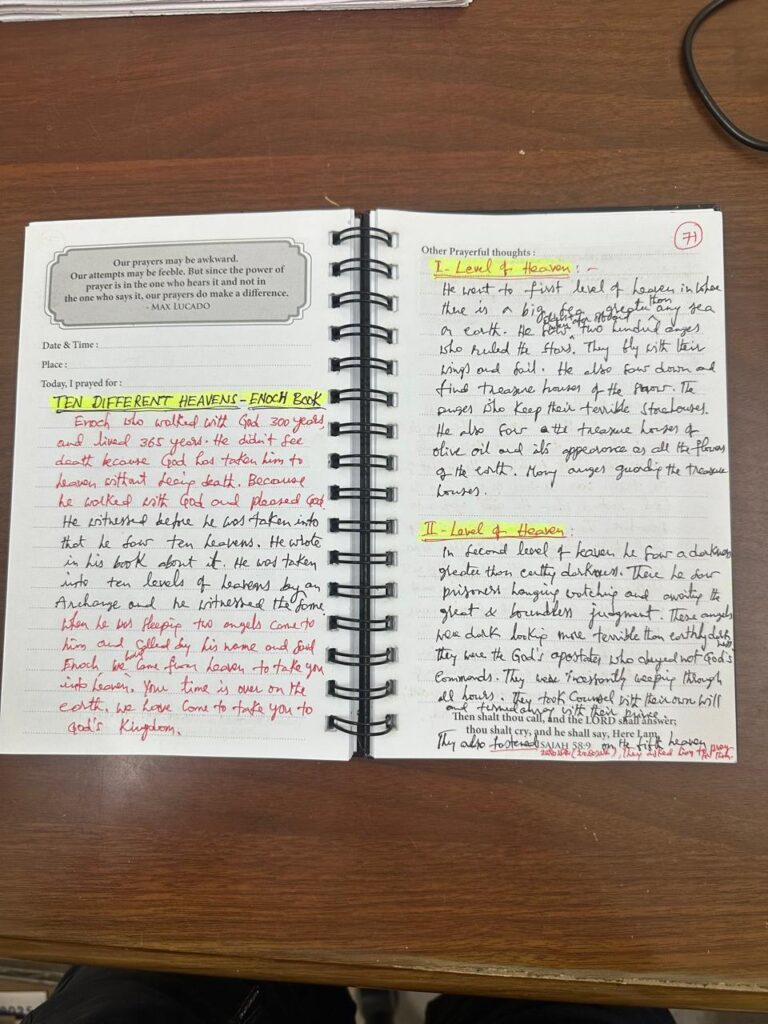 Our prayers may be awkward.
Our attempts may be feeble. But since the power of
prayer is in the one who hears it and not in
the one who says it, our prayers do make a difference.
- MAX LUCADO
Date & Time :
Place :
Today, I prayed for :
TEN DIFFERENT HEAVENS - ENOCH BOOK
Enoch who walked with God 300 years
and lived 365 years. He didn't see
death because God has taken him to
heaven without being death. Because
he walked with God and pleased God.
He witnessed before he was taken into
that he saw ten heavens. He wrote
in his book about it. He was taken
into ten levels of heavens by an
Archange and he witnessed the same
When he was sleeping two angels came to
him and called by his name and said
Enoch we have came from heaven to take you
into heaven. Your time is over on the
earth. We have come to take you to
God's Kingdom.
71
Other Prayerful thoughts :
I - Level of Heaven : -
He went to first level of heaven in where
there is a big sea greater than any sea
on earth. He saw two hundred anges
who ruled the stars. They fly with their
wings and sail. He also saw down and
find treasure houses of the snow. The
anges who keep their terrible storehouses.
He also saw the treasure houses of
olive oil and its appearance as all the flowers
of the earth. Many anges guarding the treasure
houses.
II - Level of Heaven :
In second level of heaven he saw a darkness
greater than earthy darkness. There he saw
prisoners hanging watching and awaiting the
great & boundless judgment. These angels
were dark looking more terrible than earthly darkness
they were the God's apostates who obeyed not God's
commands. They were incessantly weeping through
all hours. They took counsel with their own will
and turned away with their prince.
Then shalt thou call, and the LORD shall answer;
thou shalt cry, and he shall say, Here I am.
They also fastened on the fifth heaven
ISAIAH 58:9
They asked him to pray
for them.